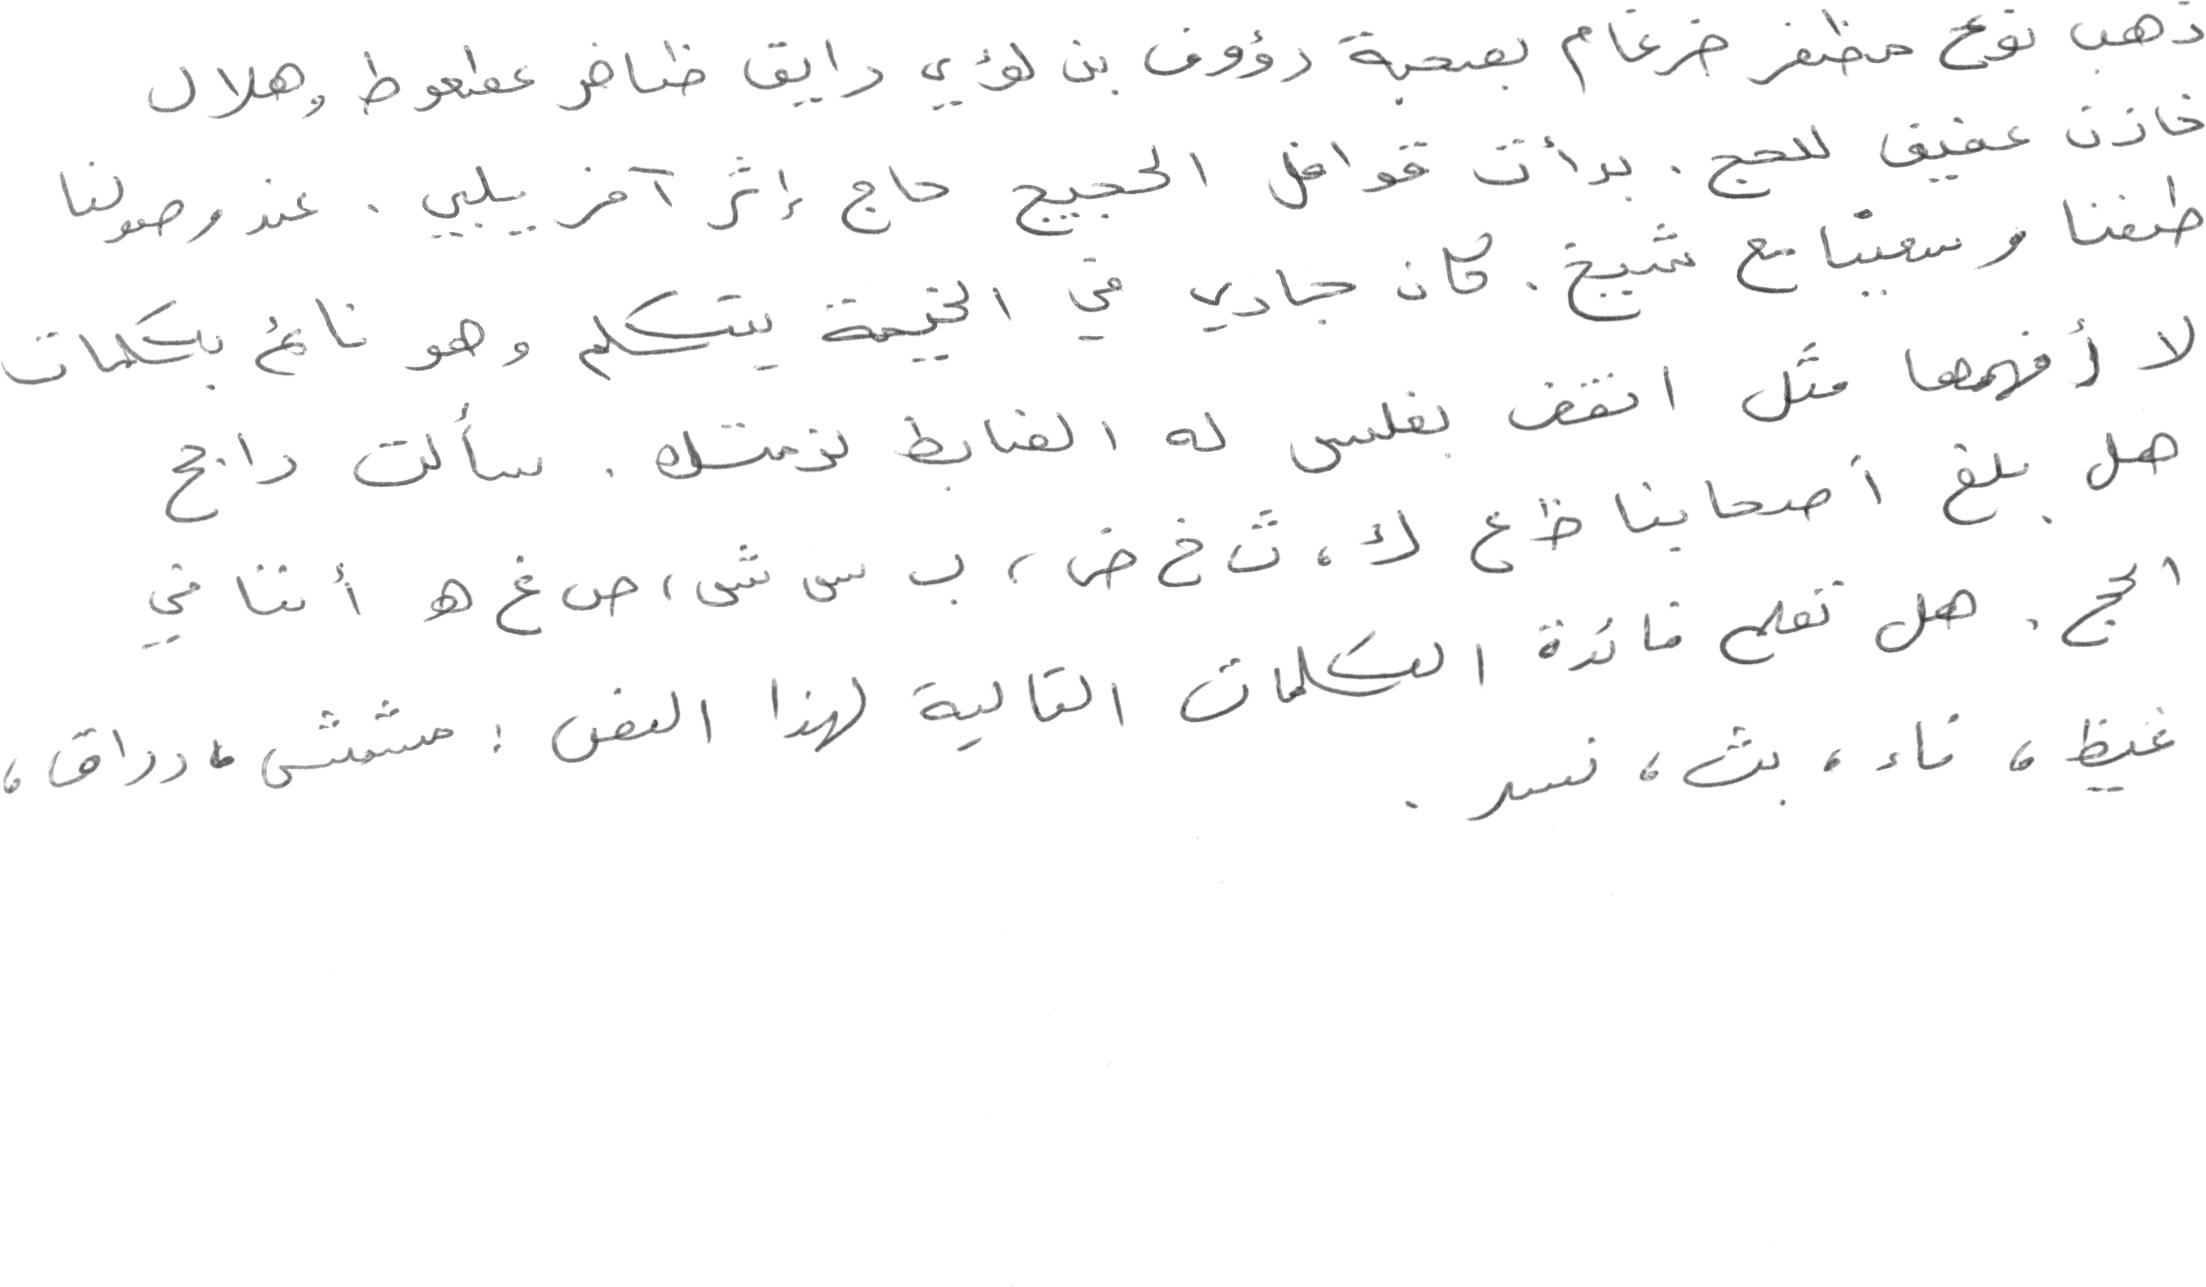 ذهب نوح مظفر ضرغام بصحبة رؤوف بن لؤي رايق ظافر عطعوط وهلال
خازن عفيف للحج. بدأت قوافل الحجيج حاج إثر آخر يلبي. عند وصولنا
طفنا وسعينا مع شيخ. كان جاري في الخيمة يتكلم وهو نائم بكلمات
لا أفهمها مثل انقض بغلس له الضابط لزمتك. سألت راجح
هل بلغ أصحابنا ظ ع ك، ث خ ض، ب س ش، ص غ ه أننا في
الحج. هل تعلم فائدة الكلمات التالية لهذا النص: مشمش، دراق،
غيظ، ناء، بث، نسر.